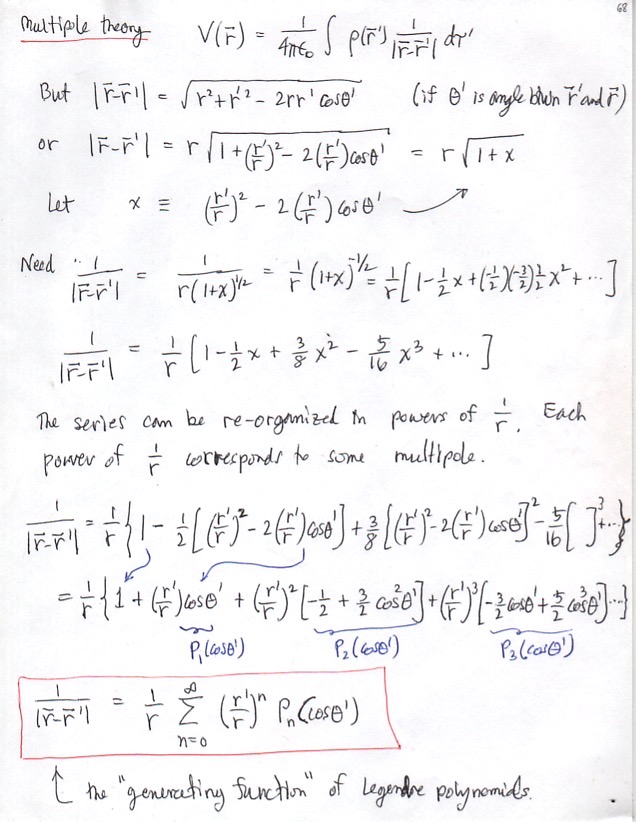 68
Multipole theory V(r̄) = 1/4πε₀ ∫ ρ(r̄') 1/|r̄-r̄'| dτ'
But |r̄-r̄'| = √(r²+r'² - 2rr' cosθ') (if θ' is angle btwn r̄' and r̄)
or |r̄-r̄'| = r √(1+(r'/r)² - 2(r'/r)cosθ') = r √(1+x)
Let x ≡ (r'/r)² - 2(r'/r)cosθ'
Need ∴ 1/|r̄-r̄'| = 1/(r(1+x)^1/2) = 1/r (1+x)^-1/2 = 1/r [1-½x+(-½)(-3/2)½x² + ⋯]
1/|r̄-r̄'| = 1/r [1-½x + 3/8 x² - 5/16 x³ + ⋯]
The series can be re-organized in powers of 1/r. Each
power of 1/r corresponds to some multipole.
1/|r̄-r̄'| = 1/r {1 - ½[(r'/r)² - 2(r'/r)cosθ'] + 3/8[(r'/r)² - 2(r'/r)cosθ']² - 5/16[ ]³+⋯}
= 1/r {1 + (r'/r)cosθ' + (r'/r)²[-½ + 3/2 cos²θ'] + (r'/r)³[-3/2 cosθ' + 5/2 cos³θ']⋯}
P₁(cosθ') P₂(cosθ') P₃(cosθ')
1/|r̄-r̄'| = 1/r ∑_{n=0}^∞ (r'/r)ⁿ Pₙ(cosθ')
the "generating function" of Legendre polynomials.